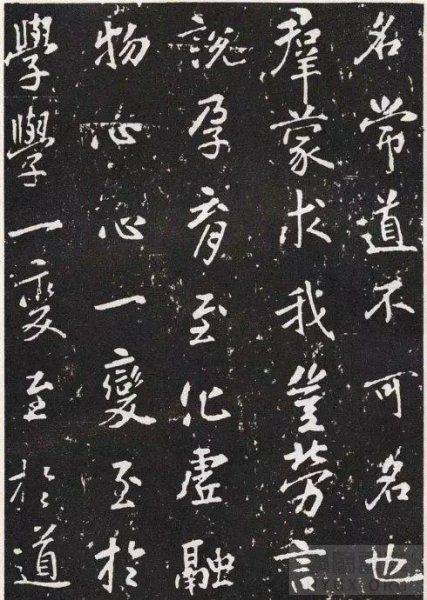 名常道不可名也
羣蒙求我豈勞言
說孕育至化虛融
物心心一變至於
學學一變至於道